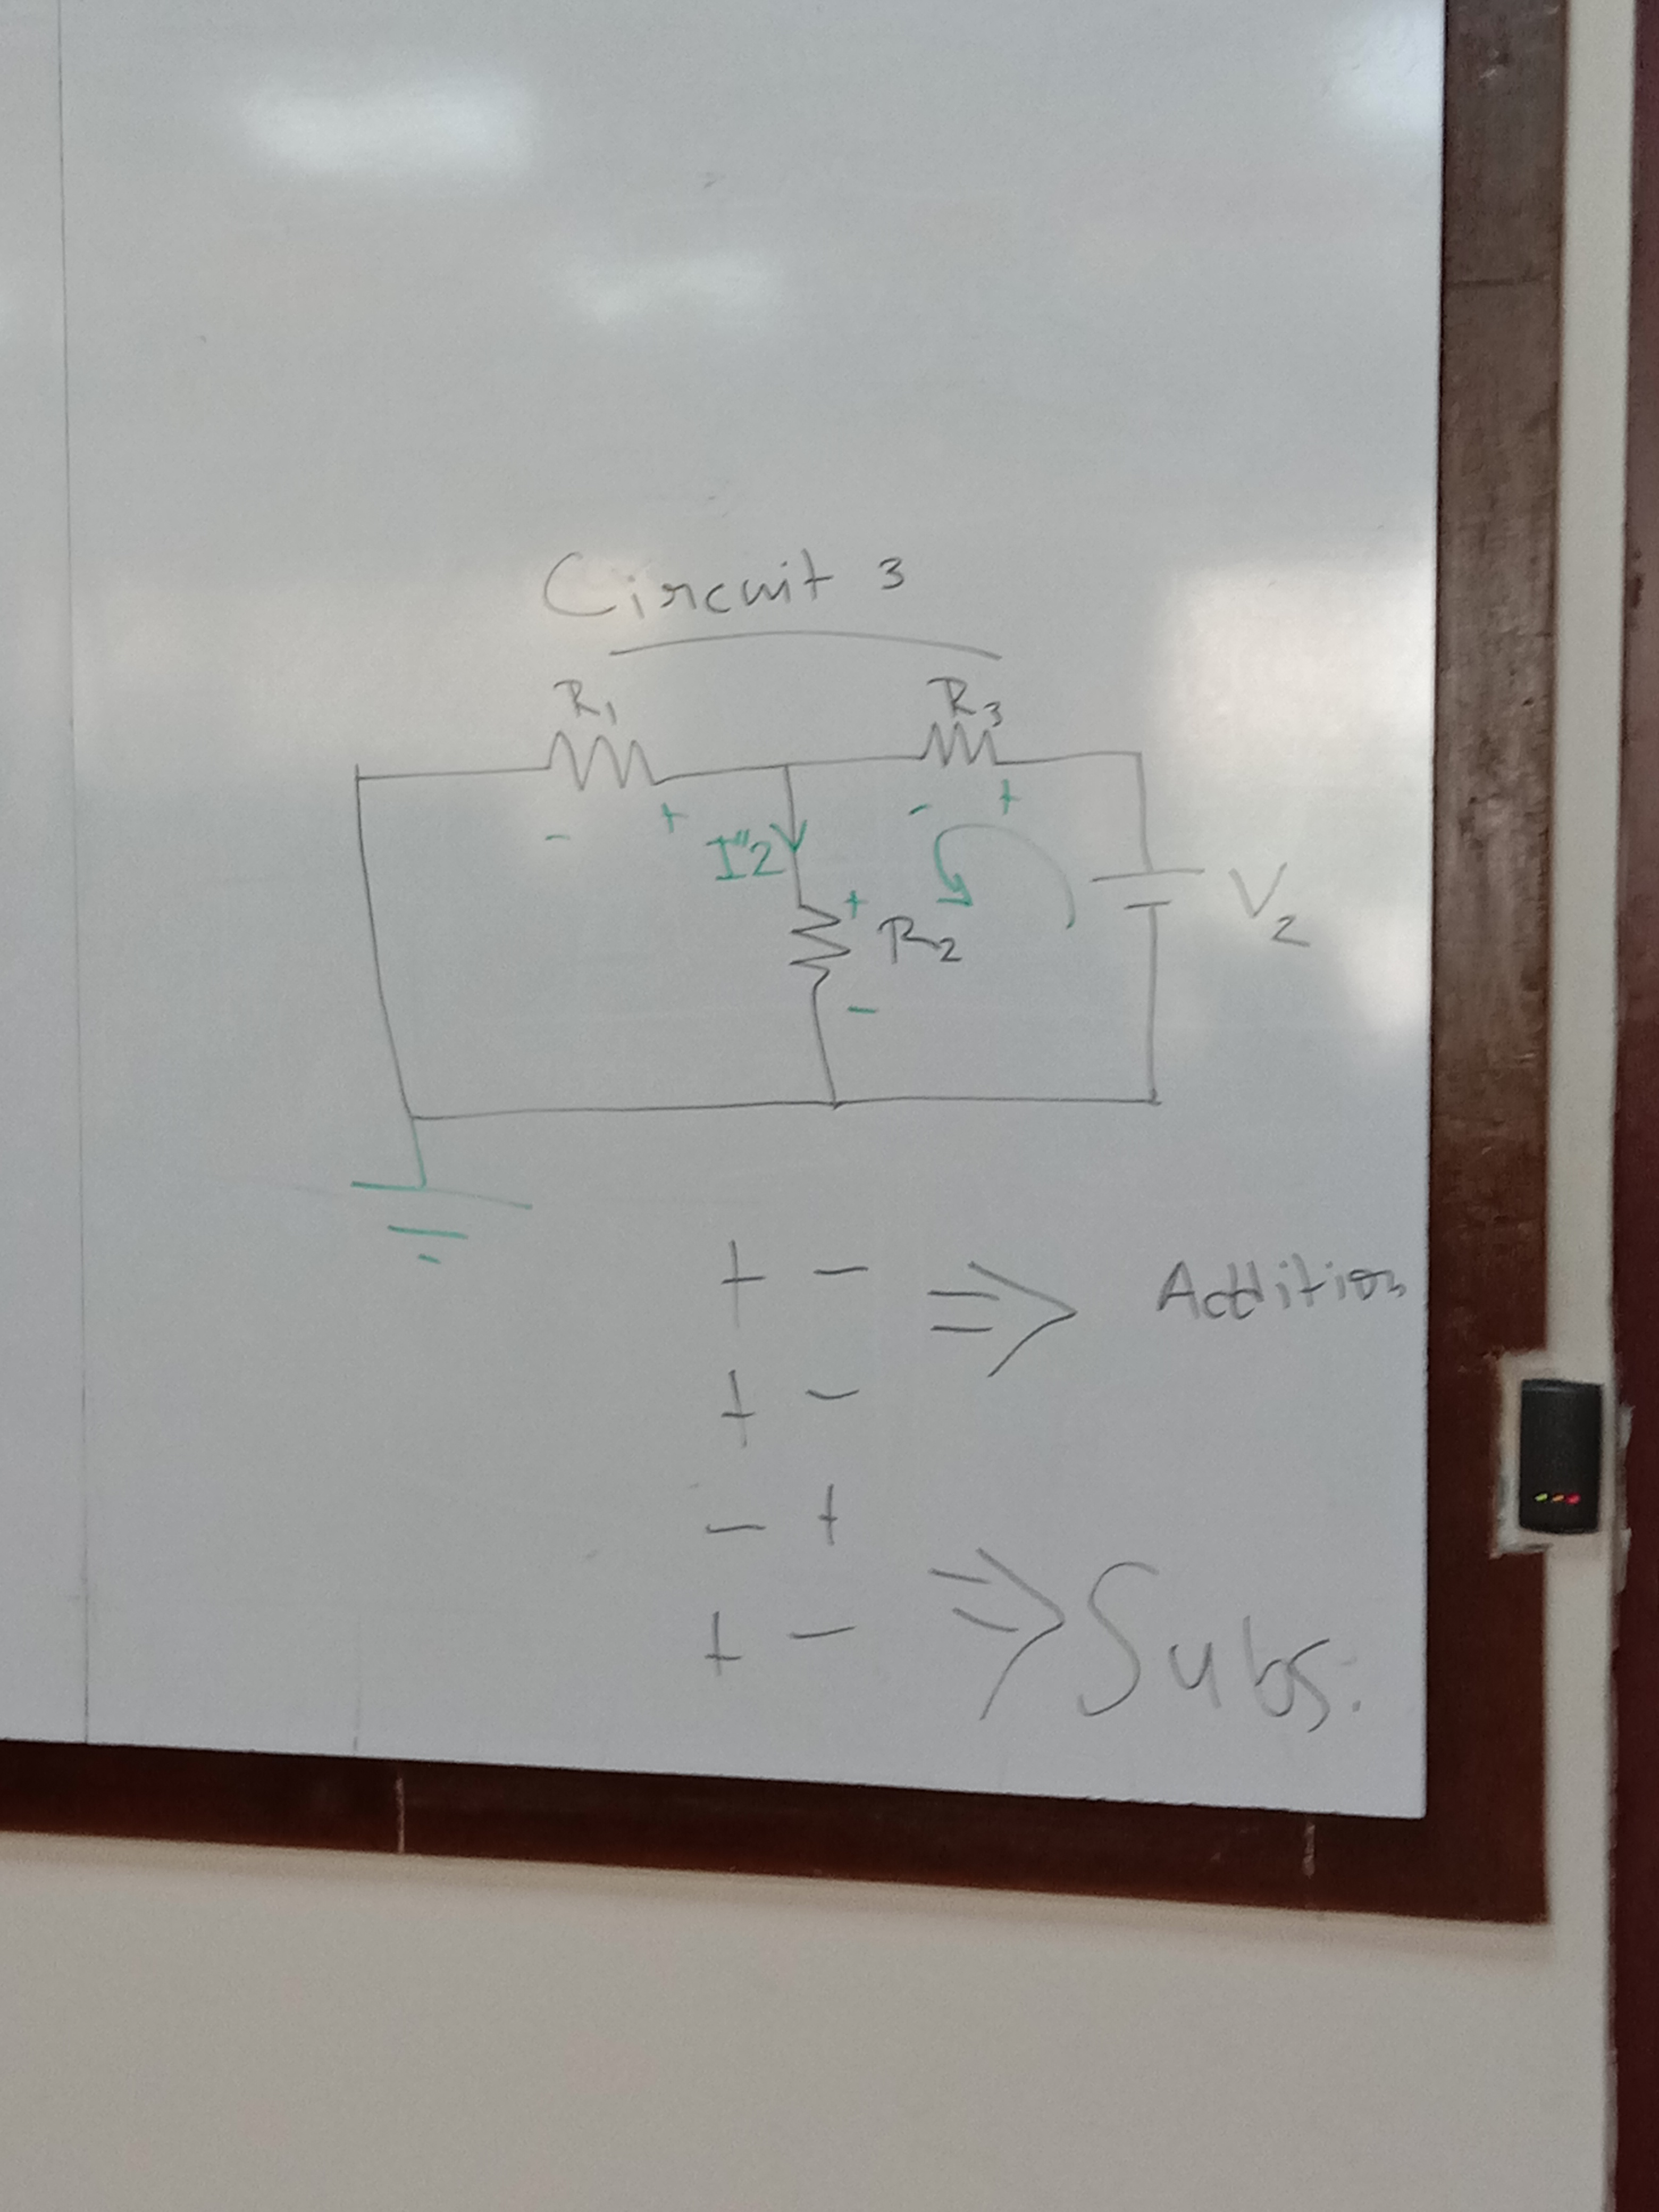 Circuit 3
R1 R3
- + - +
I"2
+ R2 V2
-
+ - ⇒ Addition
+ -
- +
+ - ⇒ Subs.